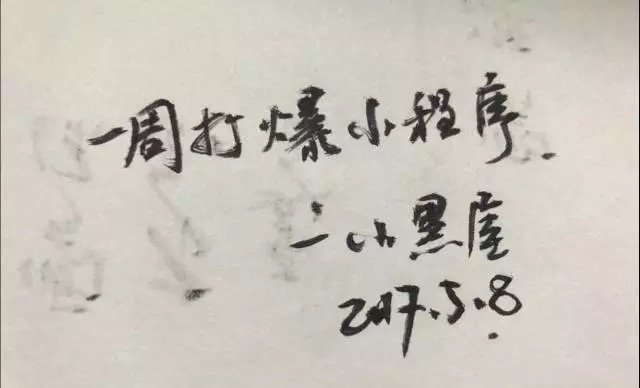 一周打爆小程序.
二小黑屋
2017.5.8